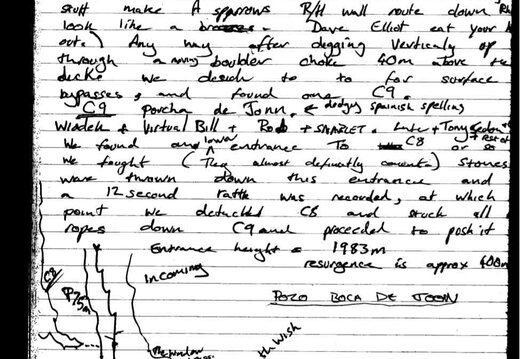 stuff make A sparrows R/H wall route down
look like a Dave Elliot eat your
out.) Any way after degging verticaly up
through a moving boulder choke 40m above te
decke we desich to to for surface
bypasses, and found our C9.
C9 porcha de Jonn. ← dodgy spainish spelling
Wlodek & Virtual Bill + Rob + SHARLET. + Tony
We found an lower entrance to C8 or so
we fought (The almost definuatly conects) stones
ware thrown down this entrance and
a 12 second rattle was recorded, at which
point we detached C8 and stuck all
ropes down C9 and proceded to posh it
Entrance height = 1983m
resurgence is approx 400m
C8
P75m
Incoming
POZO BOCA DE JOON
The window
the Wish